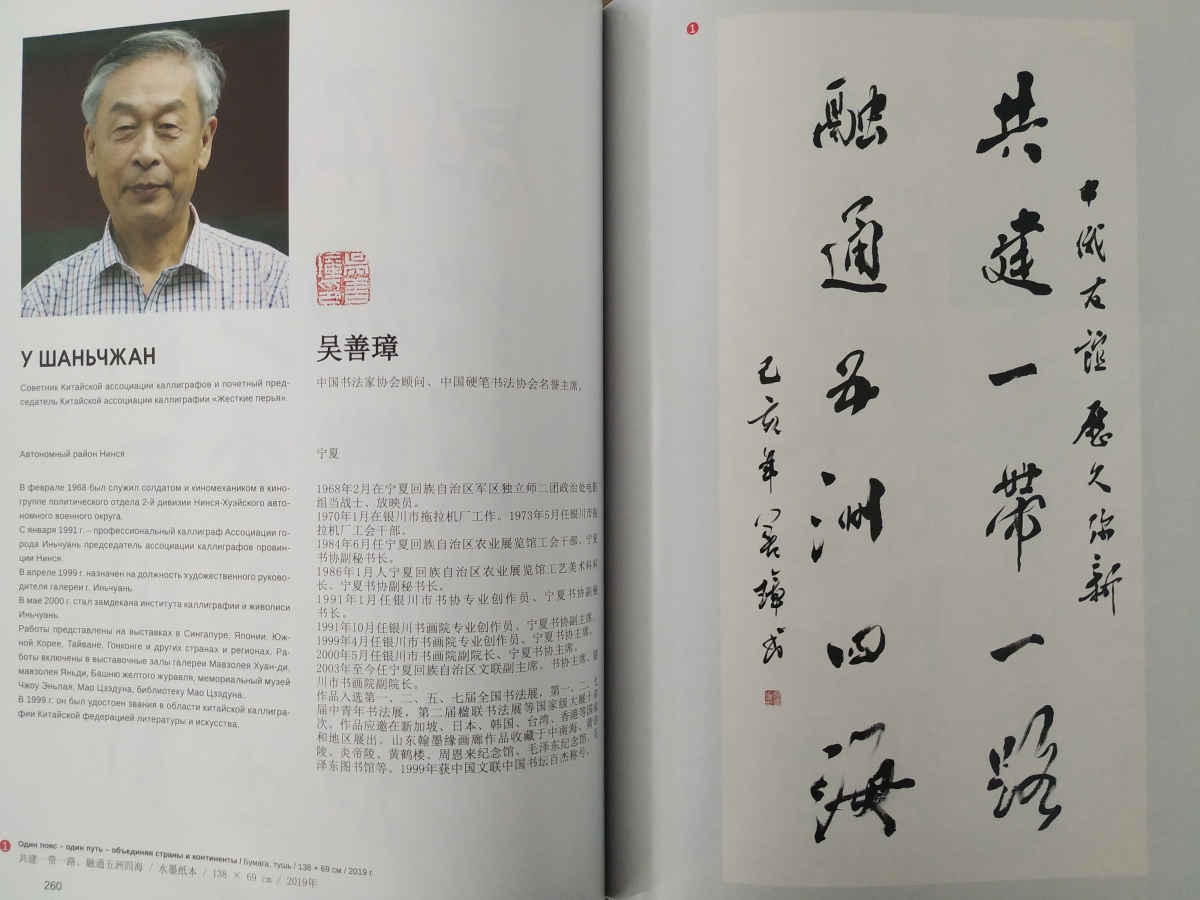 У ШАНЬЧЖАН
Советник Китайской ассоциации каллиграфов и почетный пред-
седатель Китайской ассоциации каллиграфии «Жесткие перья».
Автономный район Нинся
В феврале 1968 был служил солдатом и киномехаником в кино-
группе политического отдела 2-й дивизии Нинся-Хуэйского авто-
номного военного округа.
С января 1991 г. – профессиональный каллиграф Ассоциации го-
рода Иньчуань председатель ассоциации каллиграфов провин-
ции Нинся.
В апреле 1999 г. назначен на должность художественного руково-
дителя галереи г. Иньчуань.
В мае 2000 г. стал замдекана института каллиграфии и живописи
Иньчуань.
Работы представлены на выставках в Сингапуре, Японии, Юж-
ной Корее, Тайване, Гонконге и других странах и регионах. Ра-
боты включены в выставочные залы галереи Мавзолея Хуан-ди,
мавзолея Яньди, Башню желтого журавля, мемориальный музей
Чжоу Эньлая, Мао Цзэдуна, библиотеку Мао Цзэдуна.
В 1999 г. он был удостоен звания в области китайской каллигра-
фии Китайской федерацией литературы и искусства.
吴善璋
中国书法家协会顾问、中国硬笔书法协会名誉主席。
宁夏
1968年2月在宁夏回族自治区军区独立师二团政治处电影
组当战士、放映员。
1970年1月在银川市拖拉机厂工作。1973年5月任银川市拖
拉机厂工会干部。
1984年6月任宁夏回族自治区农业展览馆工会干部、宁夏
书协副秘书长。
1986年1月人宁夏回族自治区农业展览馆工艺美术科科
长、宁夏书协副秘书长。
1991年1月任银川市书协专业创作员、宁夏书协副秘
书长。
1991年10月任银川书画院专业创作员、宁夏书协副主席。
1999年4月任银川市书画院专业创作员、宁夏书协主席。
2000年5月任银川市书画院副院长、宁夏书协主席。
2003年至今任宁夏回族自治区文联副主席、书协主席、银
川市书画院副院长。
作品入选第一、二、五、七届全国书法展，第一、二、七
届中青年书法展，第二届楹联书法展等国家级大展十多
次。作品应邀在新加坡、日本、韩国、台湾、香港等国家
和地区展出。山东翰墨缘画廊作品收藏于中南海、黄帝
陵、炎帝陵、黄鹤楼、周恩来纪念馆、毛泽东纪念馆、毛
泽东图书馆等。1999年获中国文联中国书坛百杰称号。
1 Один пояс – один путь – объединяя страны и континенты / Бумага, тушь / 138 × 69 см / 2019 г.
共建一带一路、融通五洲四海 / 水墨纸本 / 138 × 69 cm / 2019年
260
1
中俄友谊歷久弥新
共建一帶一路
融通五洲四海
己亥年善璋书